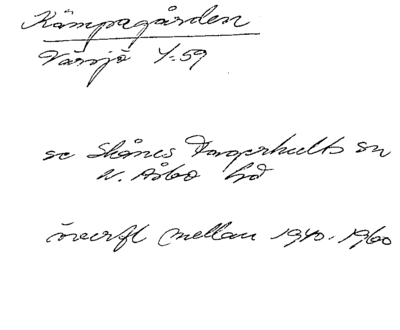 Kämpagården
Värsjö 4:59
se Skånes Fagerhults sn
N. Åsbo hd
överfl mellan 1940-1960